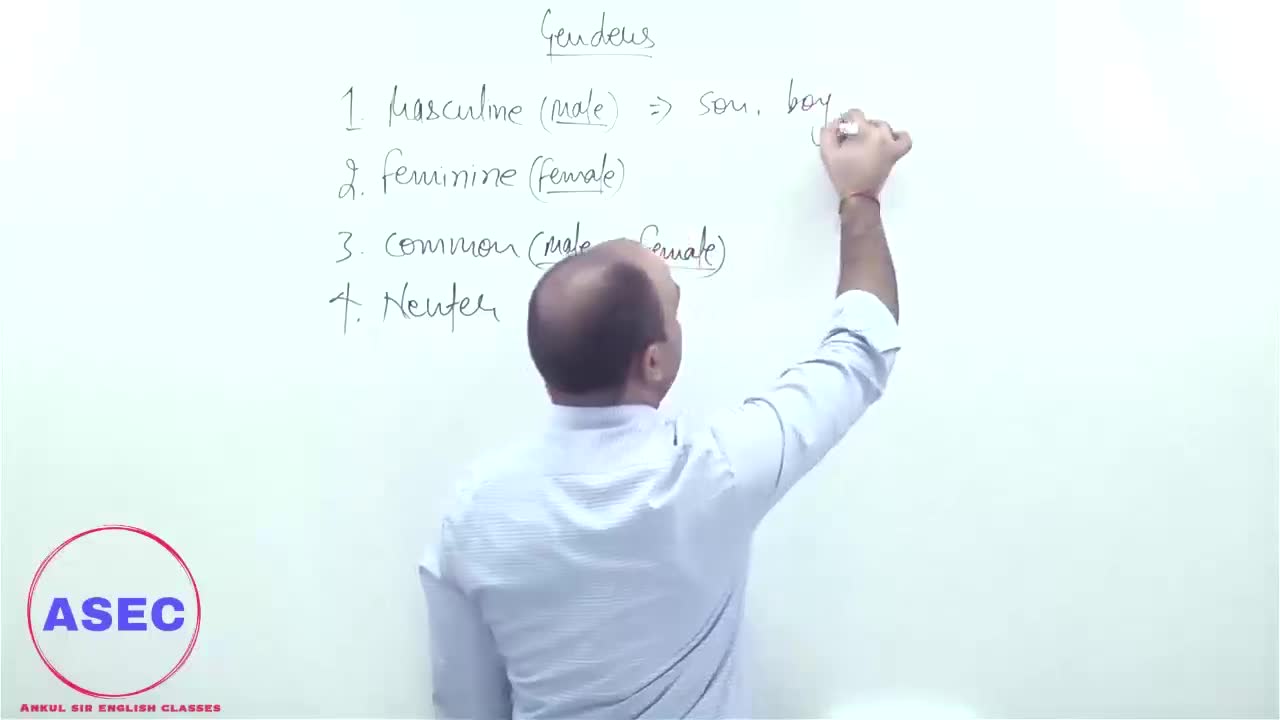 Genders
1. Masculine (male) ⇒ son, boy
2. feminine (female)
3. common (male female)
4. Neuter
ASEC
ANKUL SIR ENGLISH CLASSES